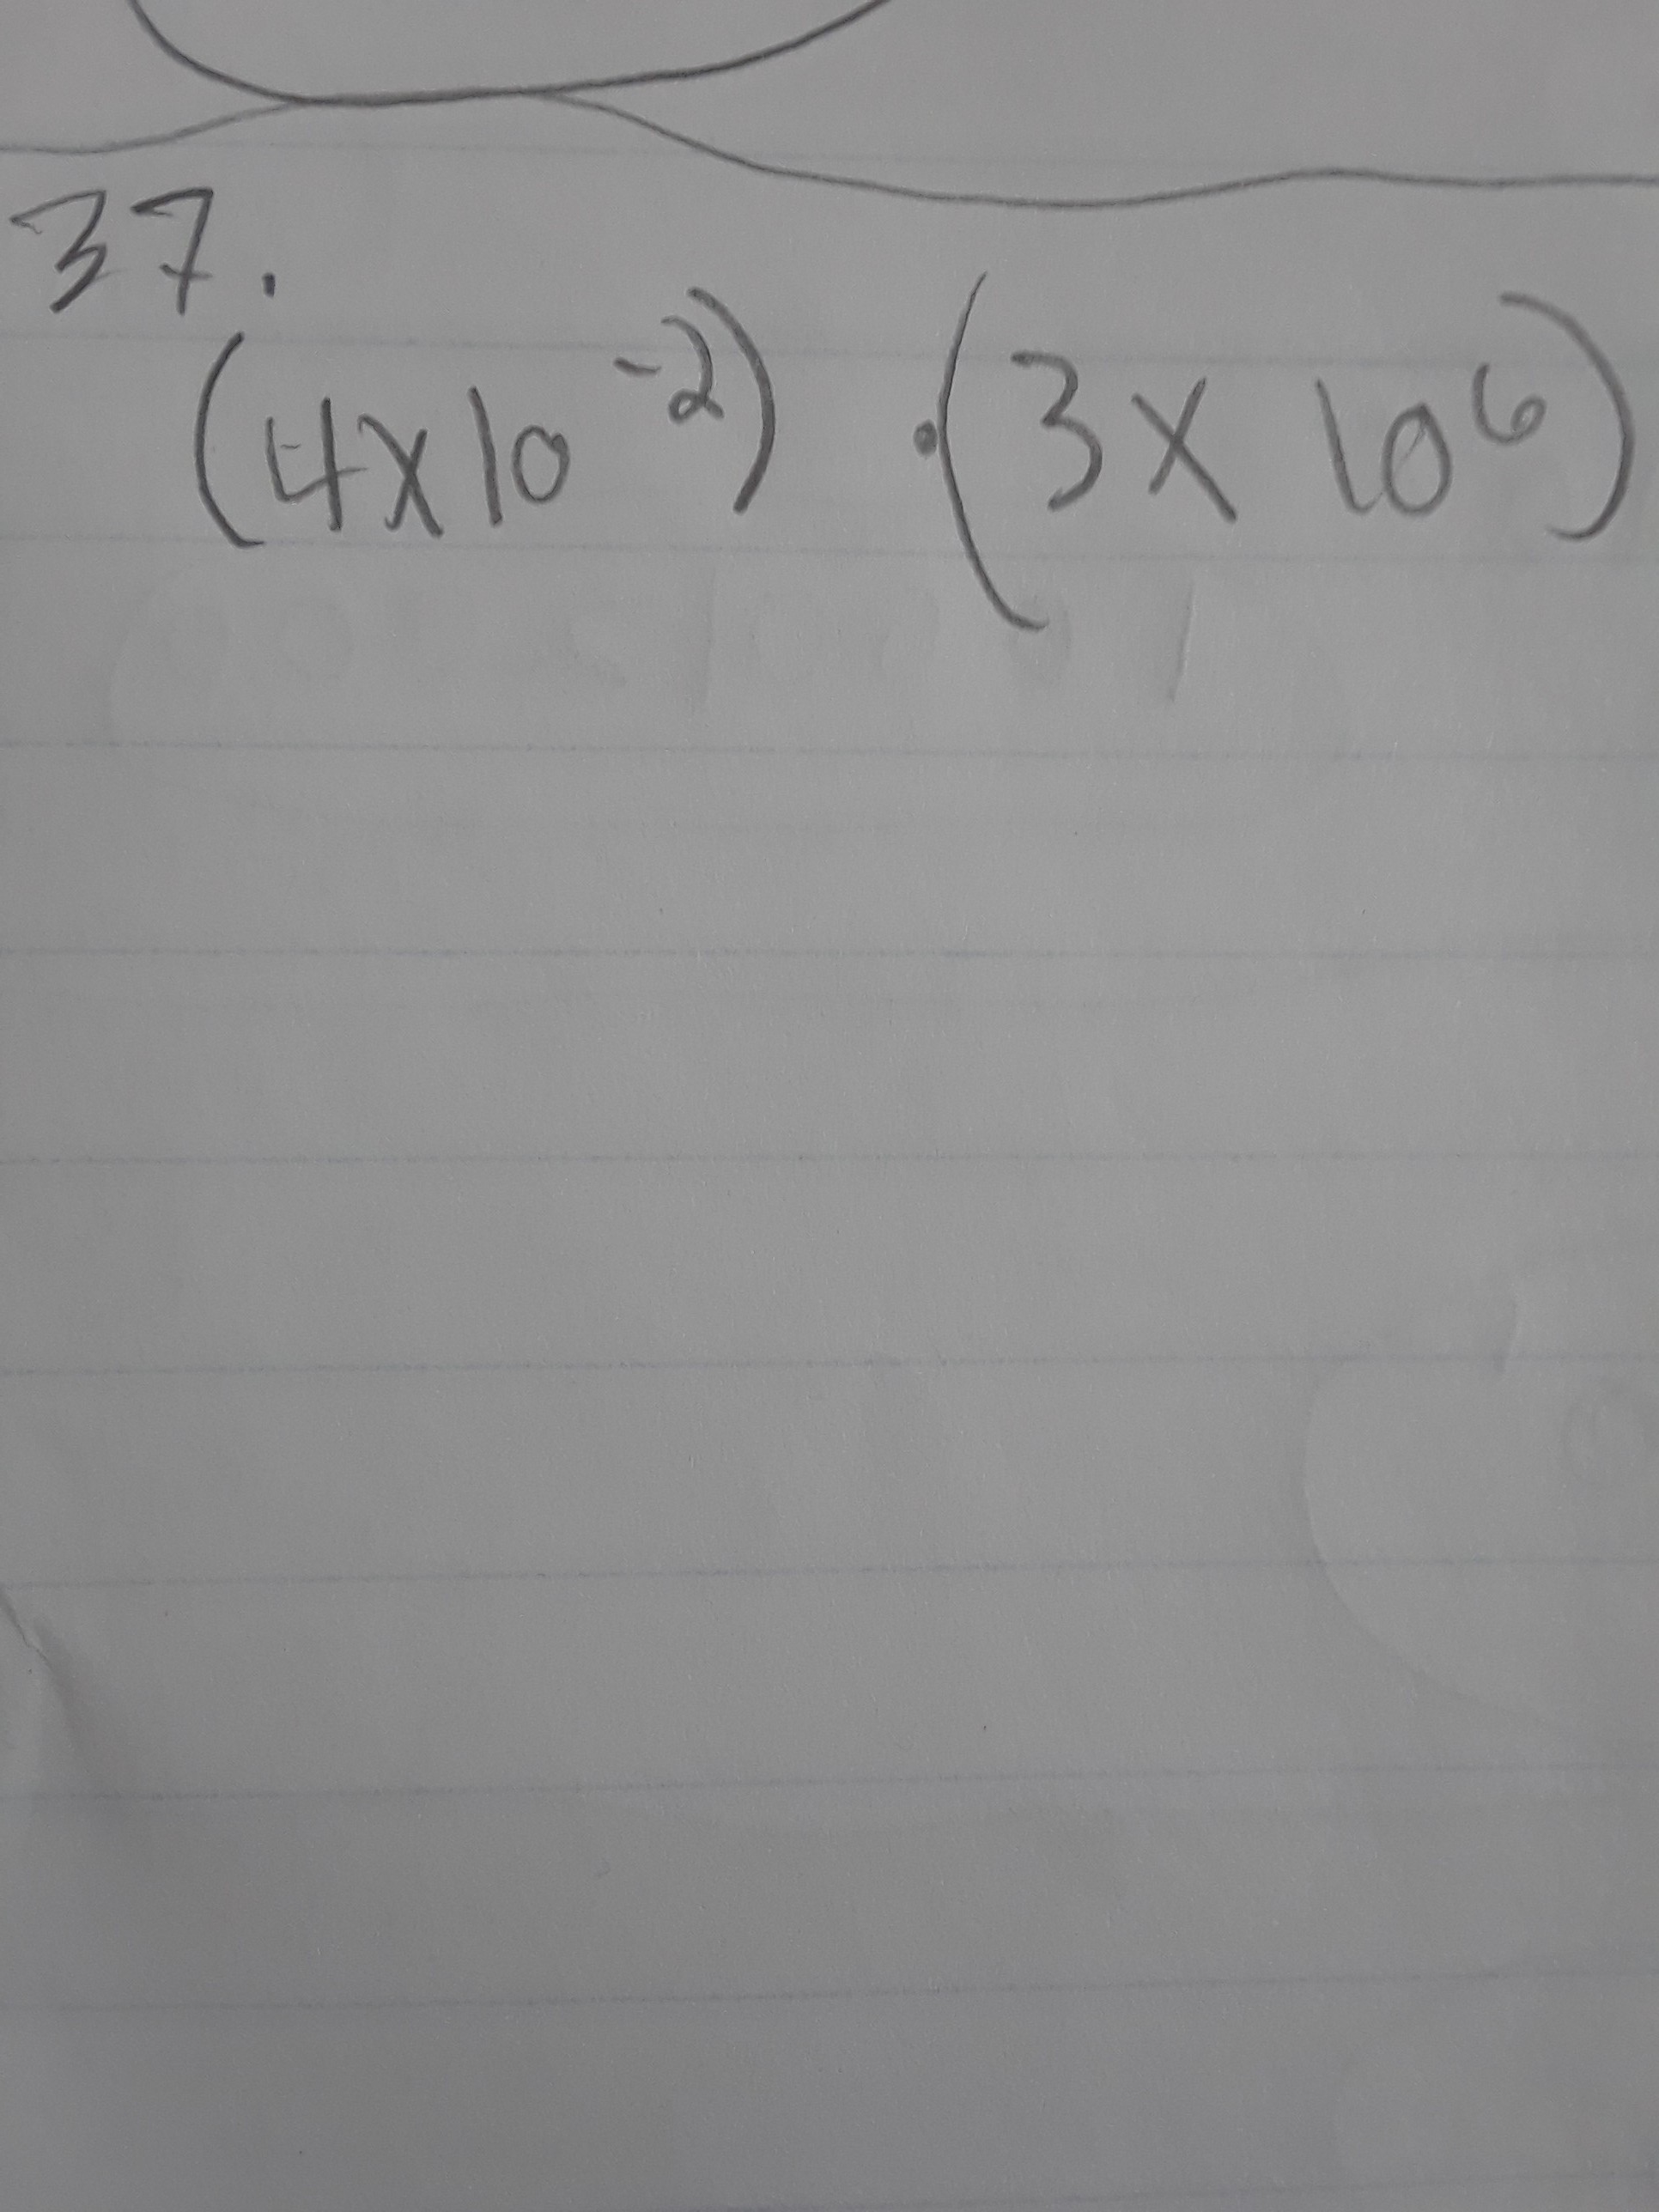 37.
(4x10⁻²) ·(3x 10⁶)